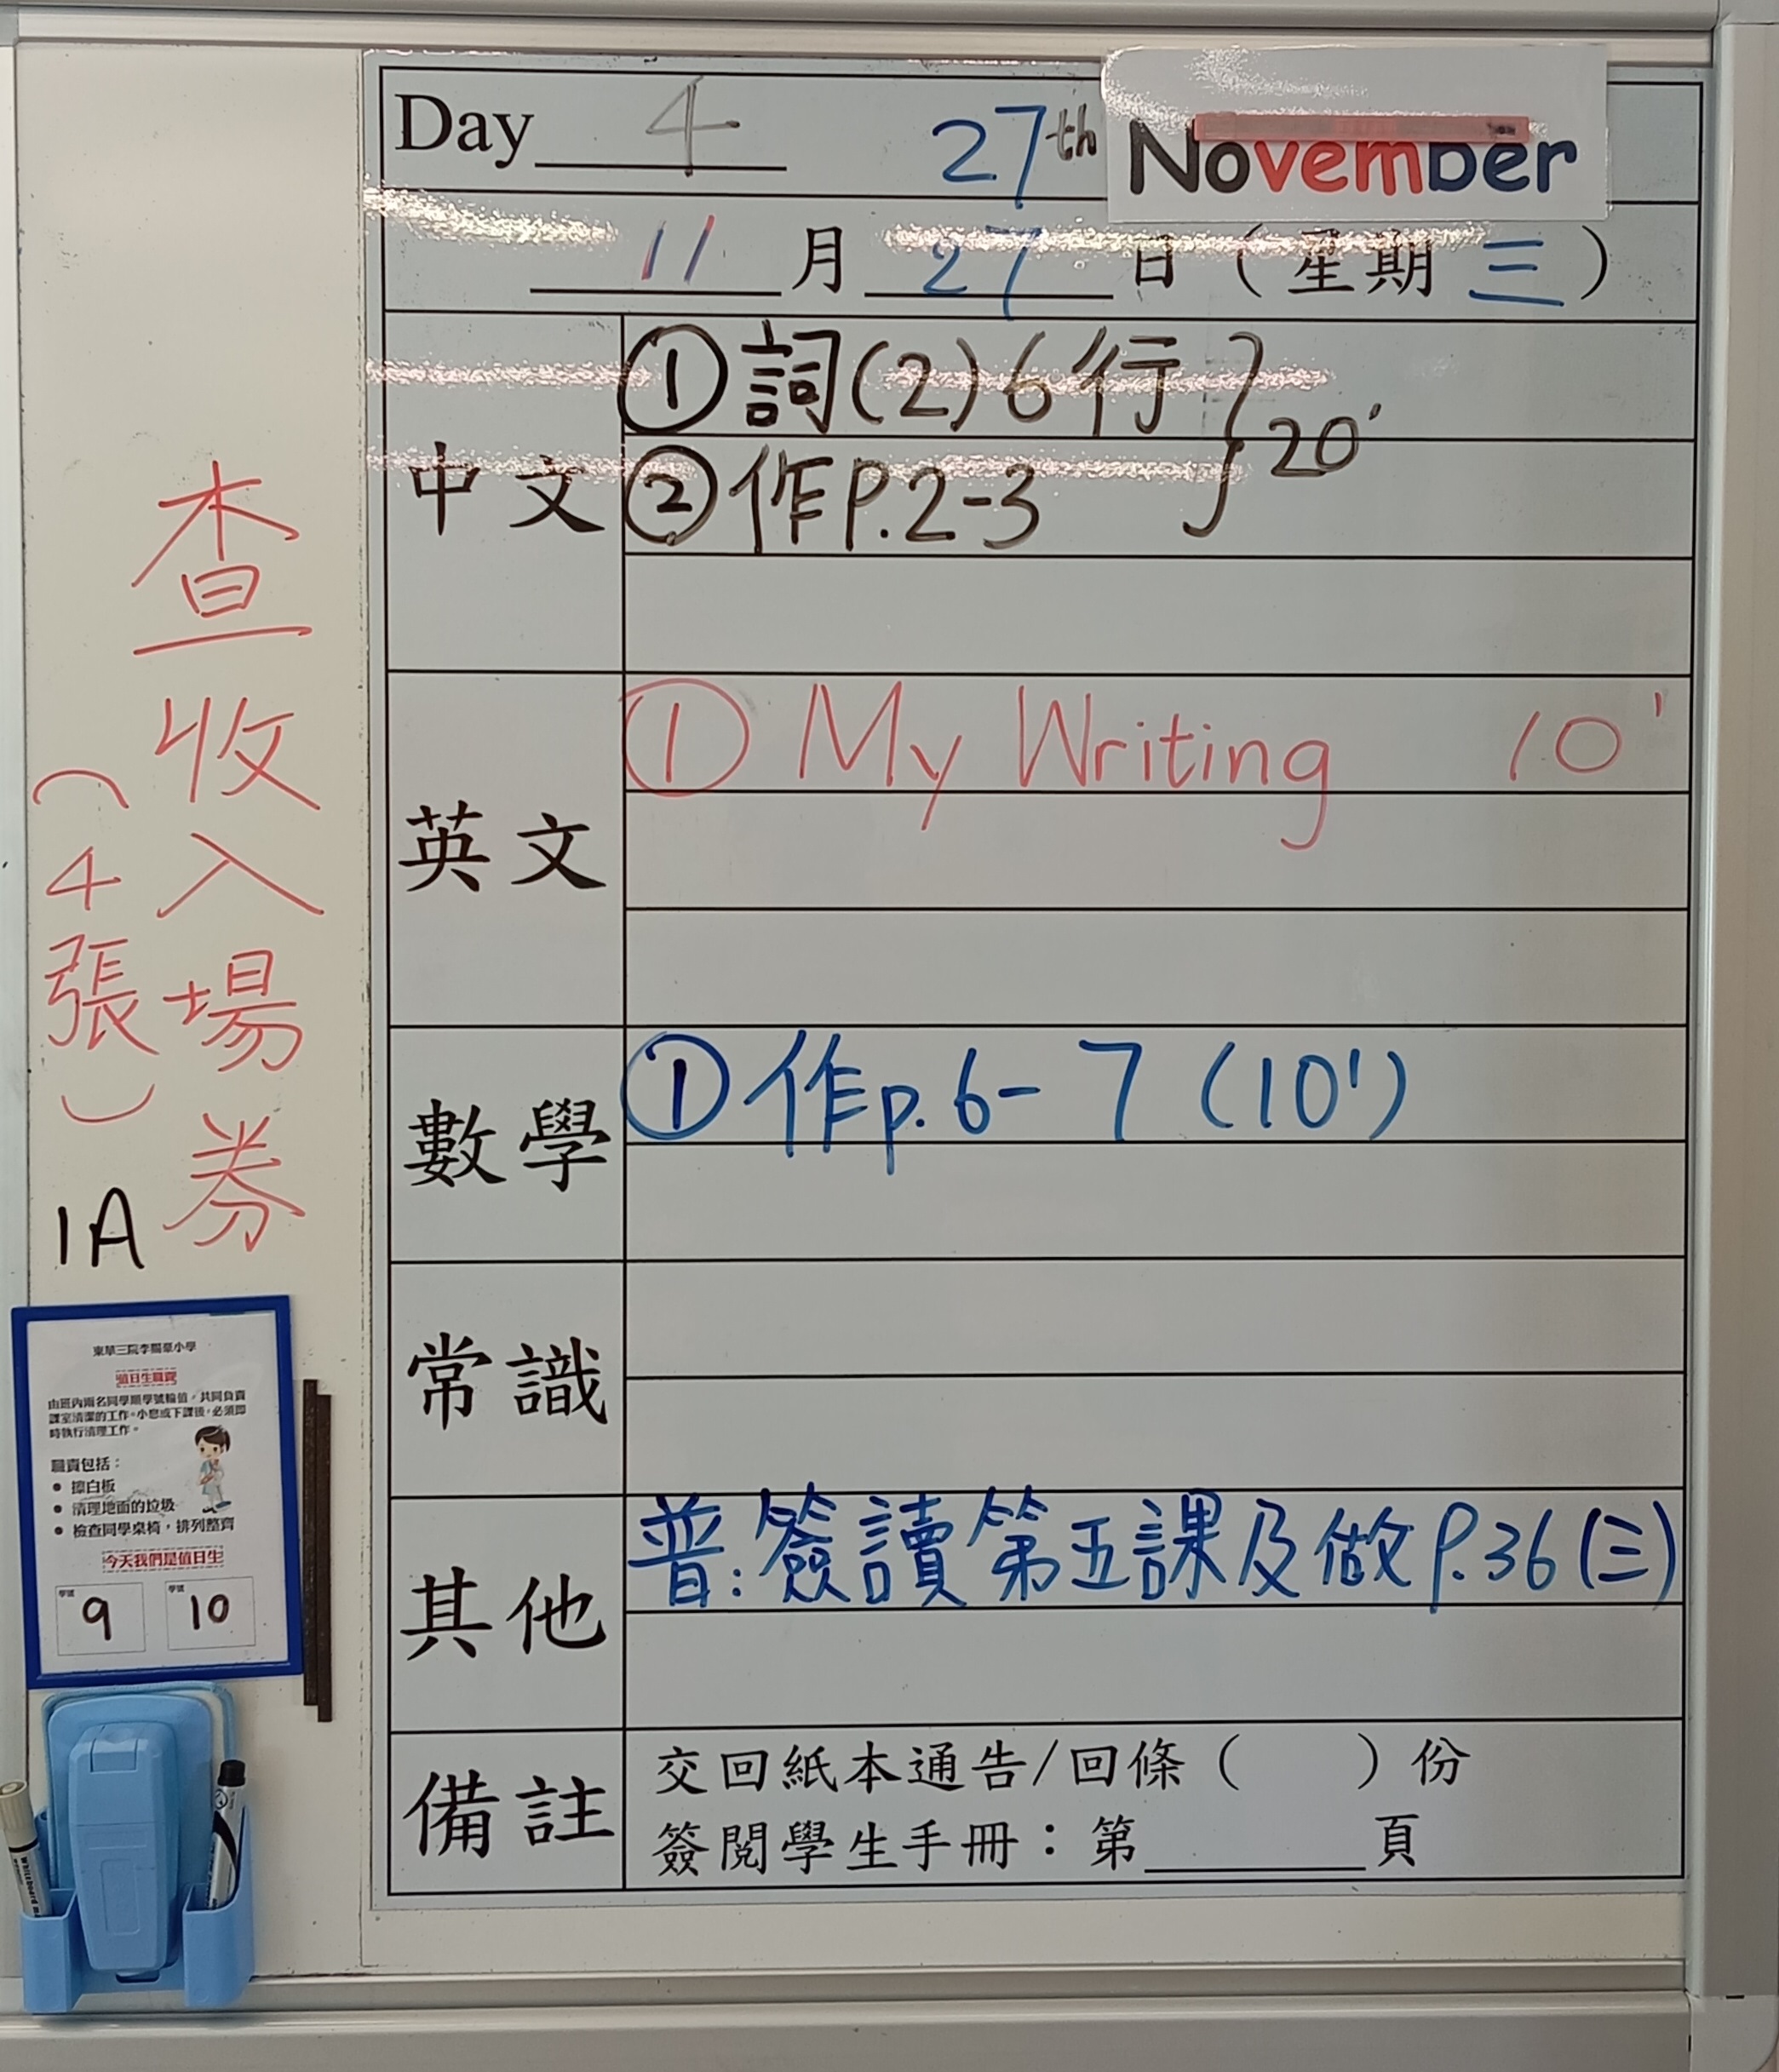 Day 4 27th November
11 月 27 日 (星期 三)
中文
① 詞(2) 6行
② 作P.2-3
} 20'
英文
① My Writing 10'
數學
① 作p.6-7 (10')
常識
其他
普:簽讀第五課及做P.36(三)
備註
交回紙本通告/回條( )份
簽閱學生手冊:第______頁
查收入場券
(4張)
1A
值日生職責
由班內兩名同學順學號輪值,共同負責
課室清潔的工作。小息或下課後,必須即
時執行清理工作。
職責包括:
• 擦白板
• 清理地面的垃圾
• 檢查同學桌椅,排列整齊
今天我們是值日生
學號 9
學號 10
Whiteboard